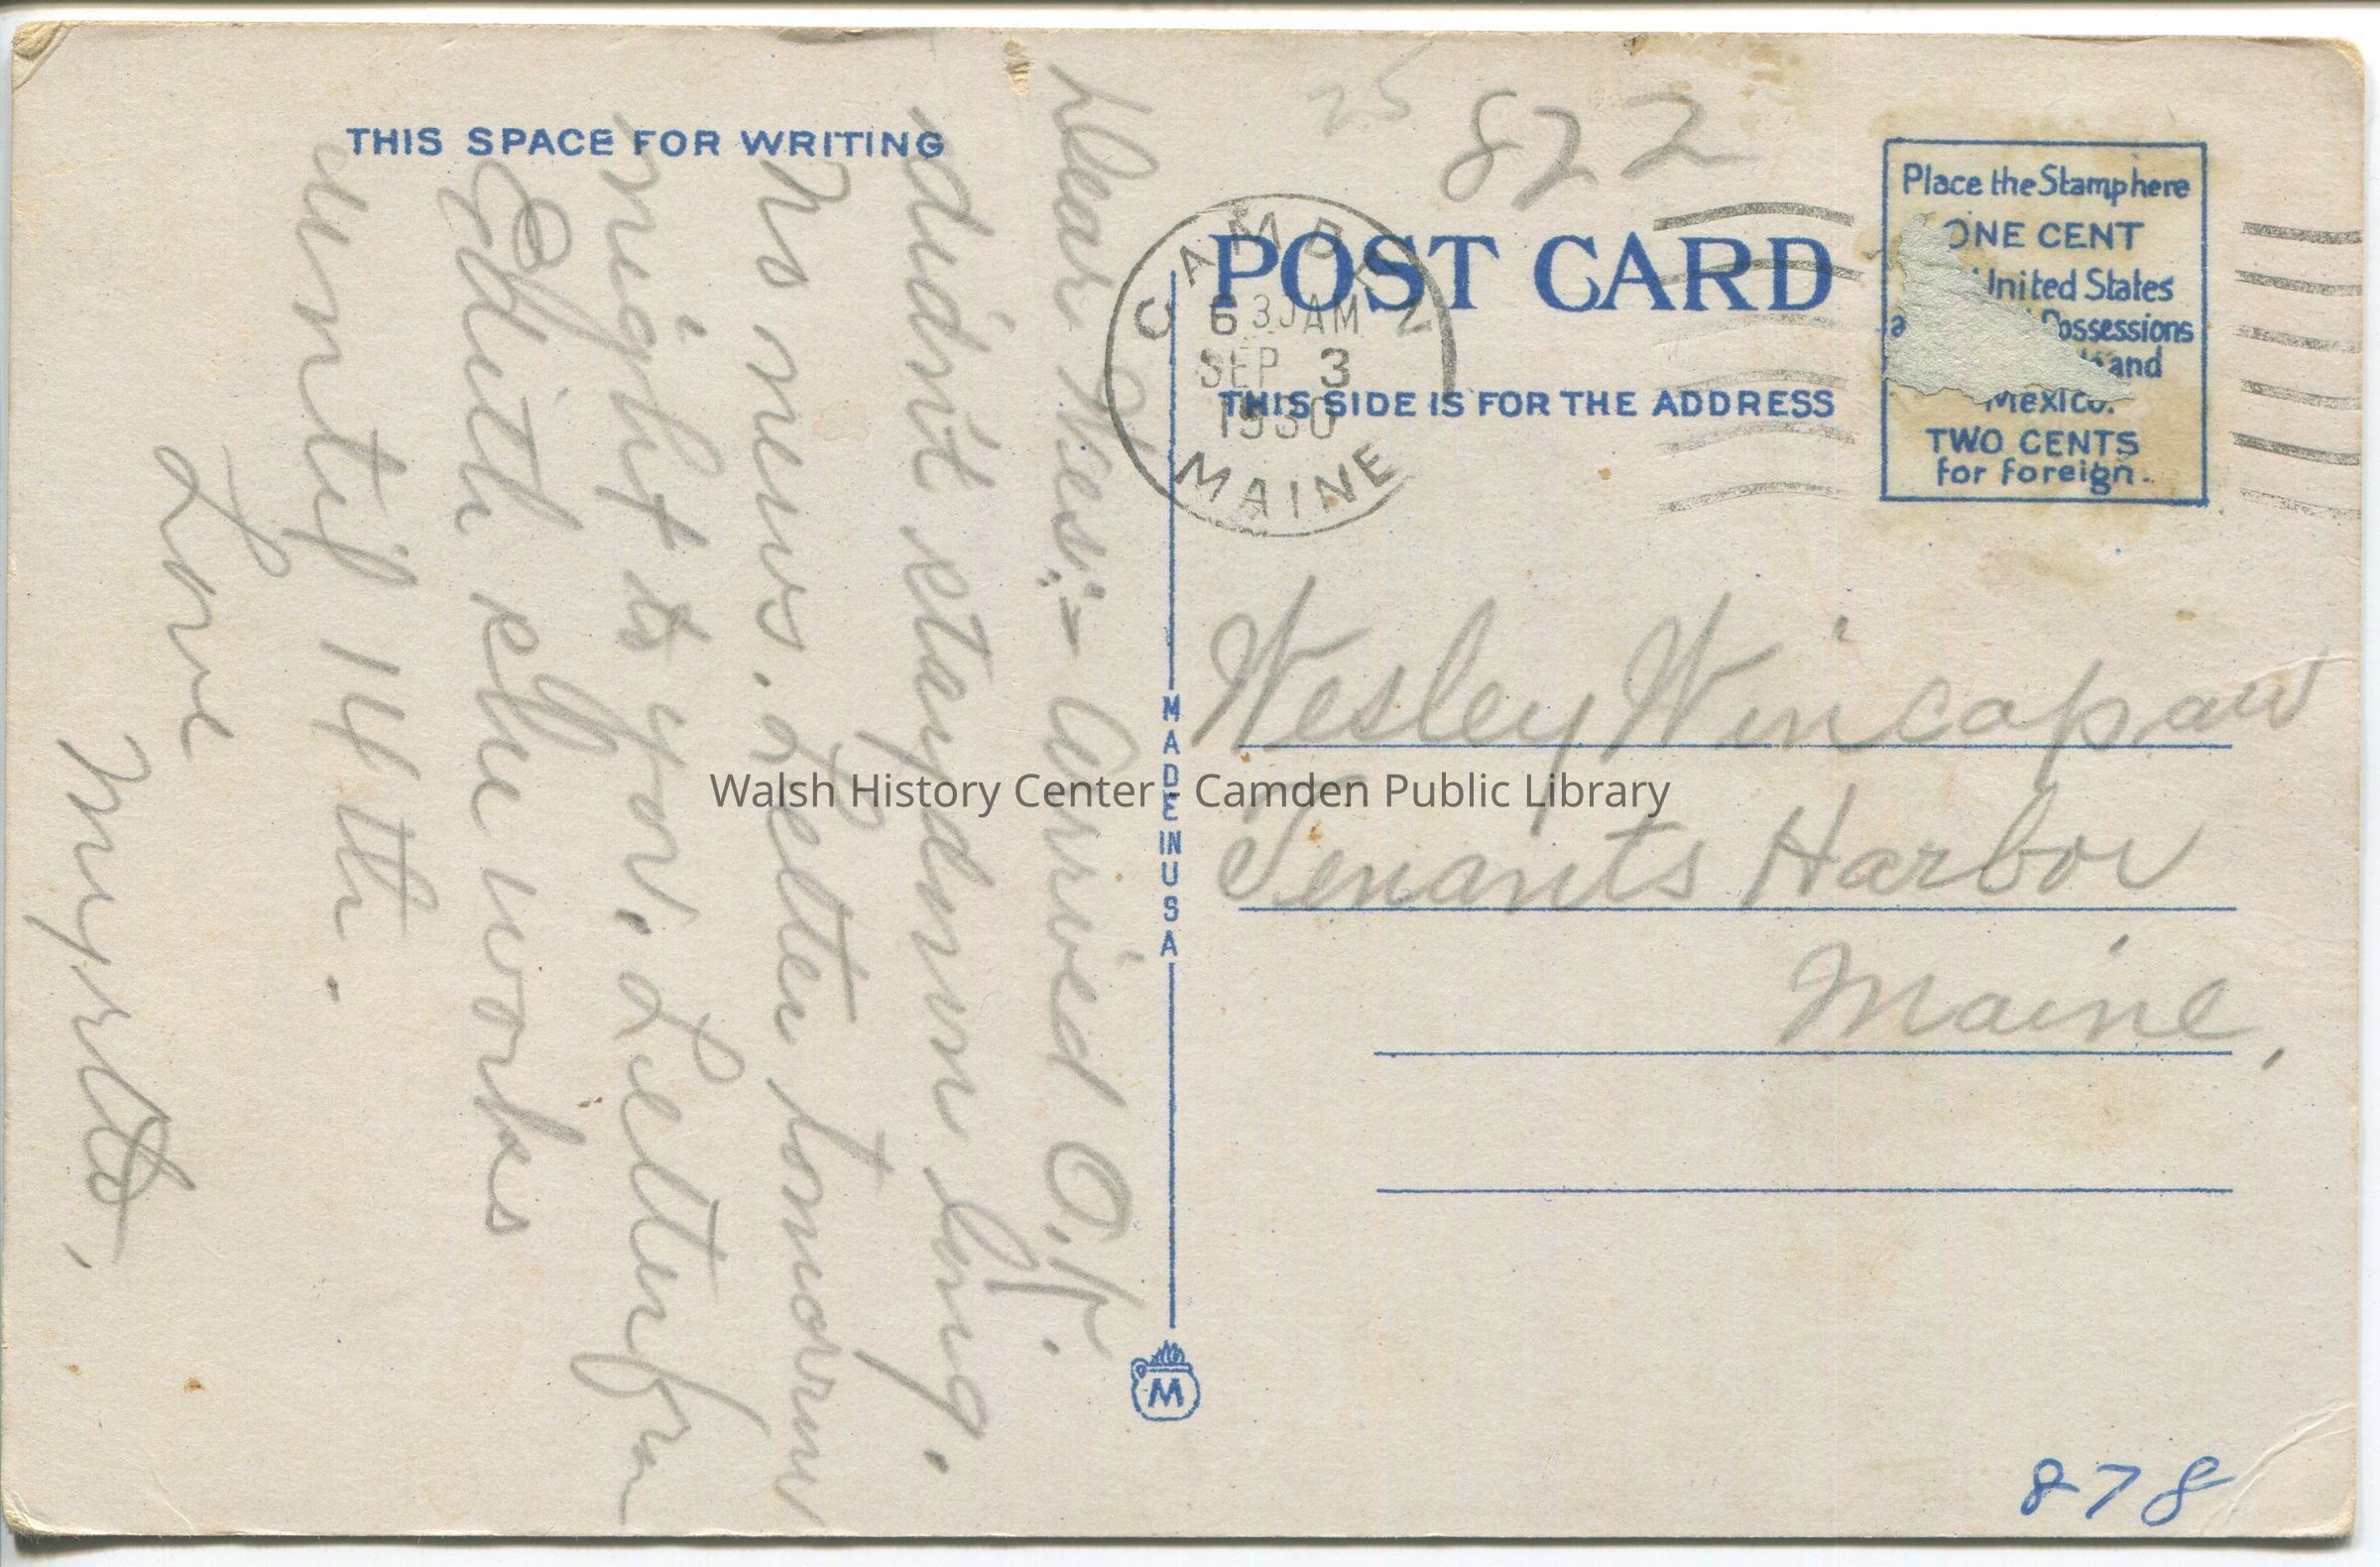 THIS SPACE FOR WRITING
Dear Wes:- Arrived O.K.
didn't stay down long.
No news. Letter tomorrow
night to you. Letter from
Edith she works
until 14th.
Love
Myrtle,
25
822
CAMDEN
630AM
SEP 3
1930
MAINE
POST CARD
THIS SIDE IS FOR THE ADDRESS
Place the Stamp here
ONE CENT
United States
Possessions
and
Mexico.
TWO CENTS
for foreign.
Wesley Wincapaw
Tenants Harbor
Maine,
MADE IN USA
M
Walsh History Center - Camden Public Library
878